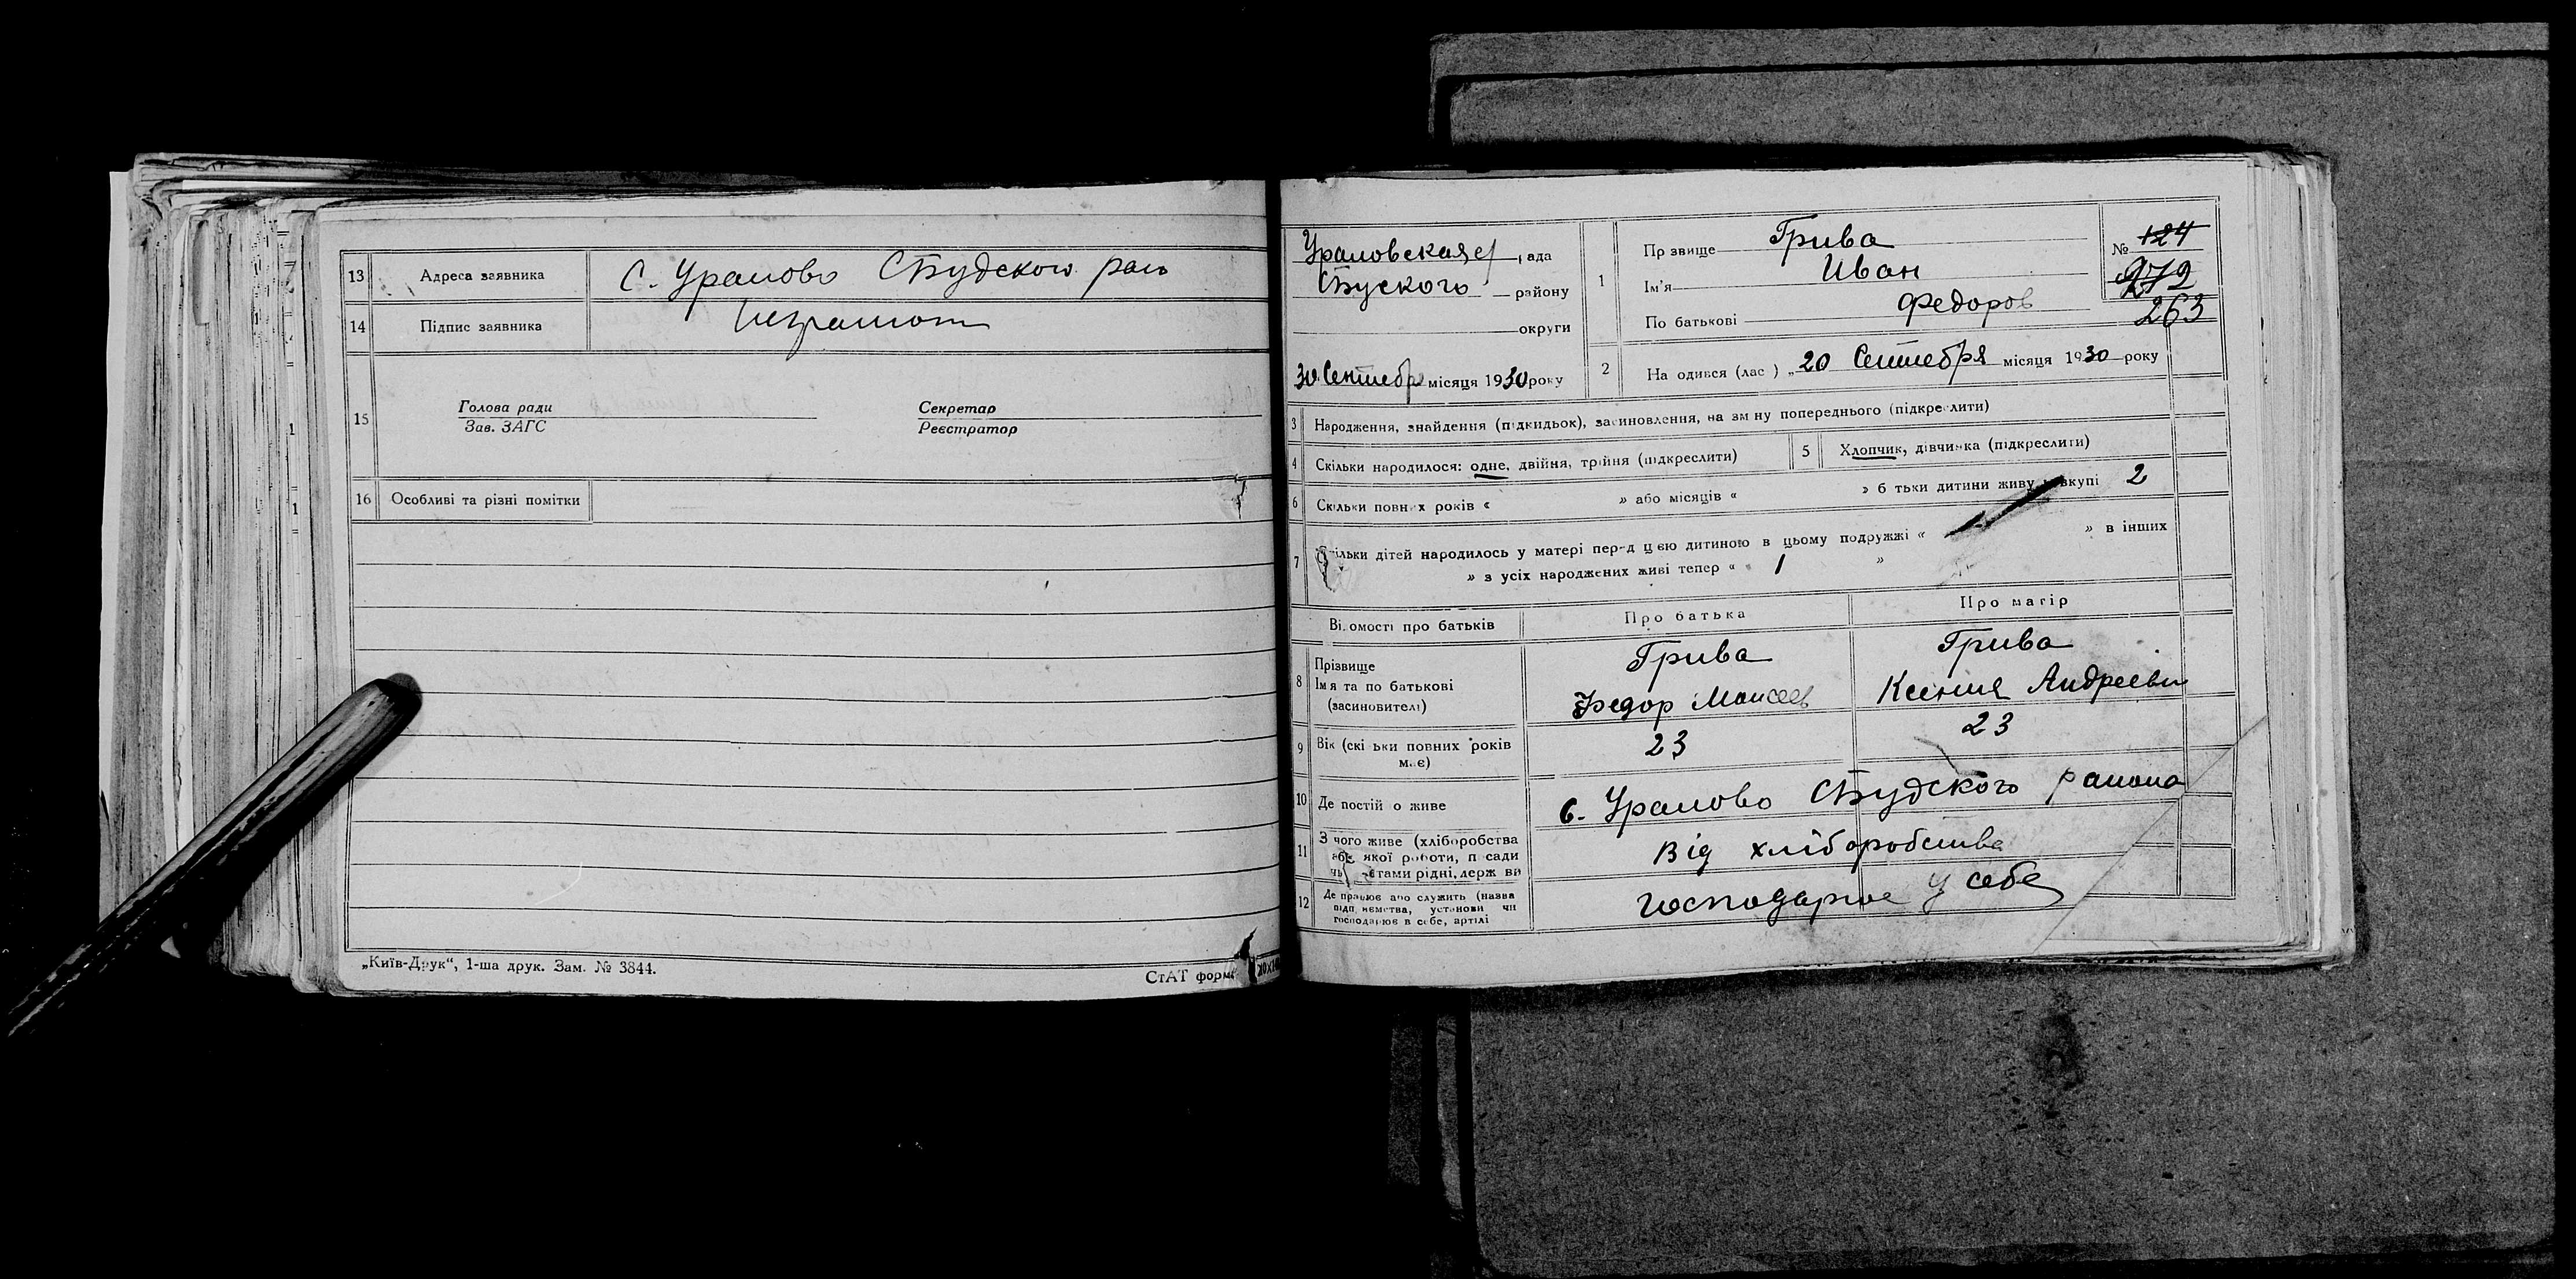 13 Адреса заявника С. Уралово СБудского рай
14 Підпис заявника Неграмот
15 Голова ради Секретар
Зав. ЗАГС Реєстратор
16 Особливі та різні помітки
„Київ-Друк“, 1-ша друк. Зам. № 3844. СтАТ форма
Ураловская с/ рада
СБуского району
округи
30 Сентебр місяця 1930 року
1 Прзвище Грива
Ім'я Иван
По батькові Федоров
№ 124
272
263
2 На одився (лас ) „20 Сентебря місяця 1930 року
3 Народження, знайдення (підкидьок), засиновлення, на зм ну попереднього (підкреслити)
4 Скільки народилося: одне, двійня, трійня (підкреслити) 5 Хлопчик, дівчинка (підкреслити)
6 Скільки повних років « » або місяців « » б тьки дитини живу вкупі 2
7 Скільки дітей народилось у матері перед цією дитиною в цьому подружжі « » в інших
» з усіх народжених живі тепер « 1 »
Відомості про батьків Про батька Про матір
8 Прізвище Грива Грива
Імя та по батькові Федор Моисеев Ксения Андреевн
(засновителі)
9 Вік (скі ьки повних років має) 23 23
10 Де постій о живе с. Уралово СБудского района
11 З чого живе (хліборобства Від хліборобства
якої роботи, п сади
тами рідні, держ ви
12 Де працює або служить (назва господарює у себе
підп иємства, установи чи
господарює в себе, артілі